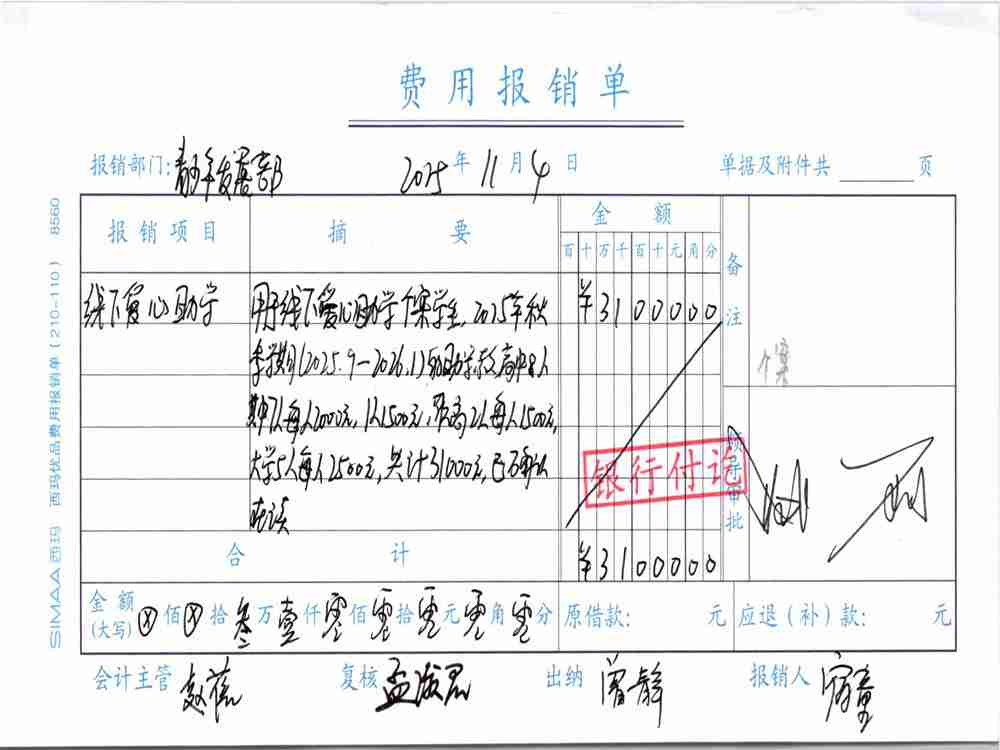 费用报销单
报销部门: 青年发展部 2025 年 11 月 4 日 单据及附件共 页
报销项目 摘要 金额 备注
百 十 万 千 百 十 元 角 分
线下爱心助学 用于线下爱心助学个案学生，2025年秋 ¥3100000
季学期（2025.9－2026.1）资助学校高中8人
其中7人每人2000元，1人1500元，职高2人每人1500元，
大学5人每人2500元，共计31000元，已已确认
在读
个案
银行付讫
领导审批
合计 ¥3100000
金额(大写) ⊗ 佰 ⊗ 拾 叁 万 壹 仟 零 佰 零 拾 零 元 零 角 零 分 原借款: 元 应退（补）款: 元
会计主管 赵蓓 复核 孟淑君 出纳 曾静 报销人
SIMAA西玛 西玛优品费用报销单（210-110） 8560